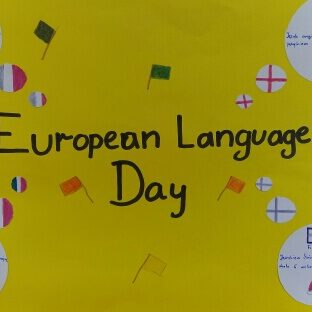 European Language
Day